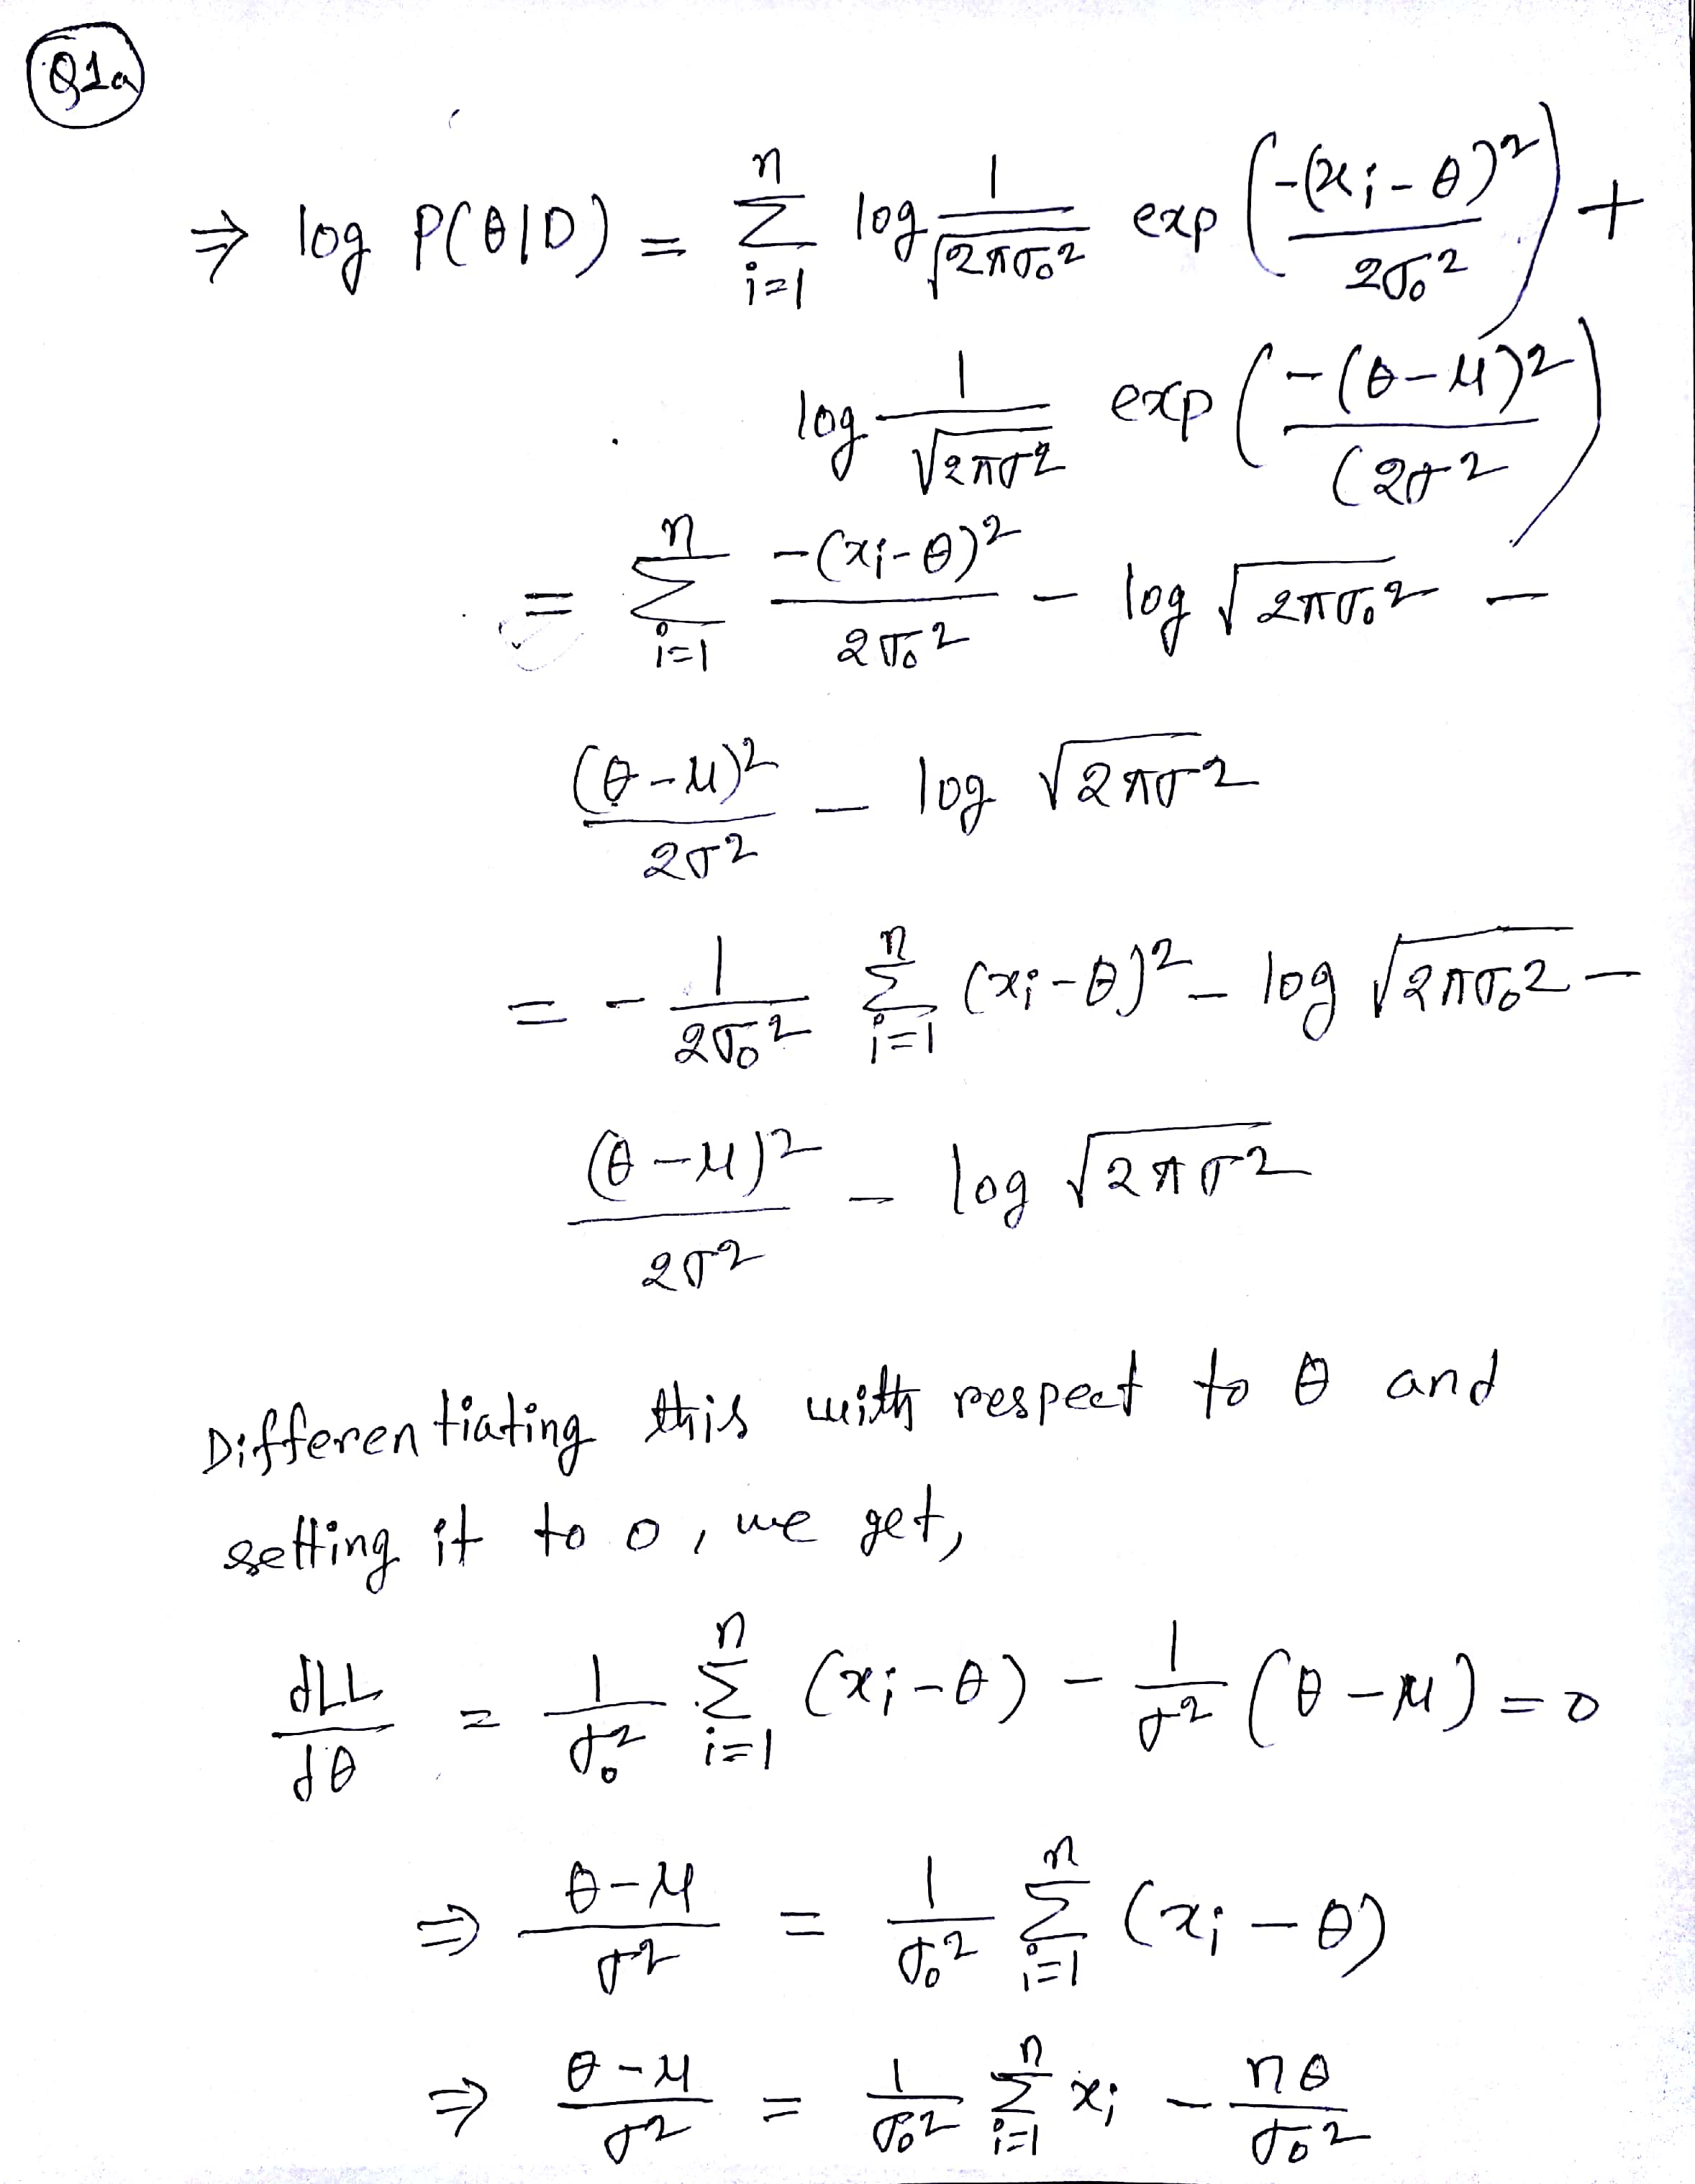 Q1a
⇒ log P(θ|D) = \sum_{i=1}^{n} log \frac{1}{\sqrt{2πσ_0^2}} exp(\frac{-(x_i-θ)^2}{2σ_0^2}) +
log \frac{1}{\sqrt{2πσ^2}} exp(\frac{-(θ-μ)^2}{(2σ^2})
= \sum_{i=1}^{n} \frac{-(x_i-θ)^2}{2σ_0^2} - log \sqrt{2πσ_0^2} -
\frac{(θ-μ)^2}{2σ^2} - log \sqrt{2πσ^2}
= - \frac{1}{2σ_0^2} \sum_{i=1}^{n} (x_i-θ)^2 - log \sqrt{2πσ_0^2} -
\frac{(θ-μ)^2}{2σ^2} - log \sqrt{2πσ^2}
Differentiating this with respect to θ and
setting it to 0, we get,
\frac{dLL}{dθ} = \frac{1}{σ_0^2} \sum_{i=1}^{n} (x_i-θ) - \frac{1}{σ^2} (θ-μ) = 0
⇒ \frac{θ-μ}{σ^2} = \frac{1}{σ_0^2} \sum_{i=1}^{n} (x_i-θ)
⇒ \frac{θ-μ}{σ^2} = \frac{1}{σ_0^2} \sum_{i=1}^{n} x_i - \frac{nθ}{σ_0^2}